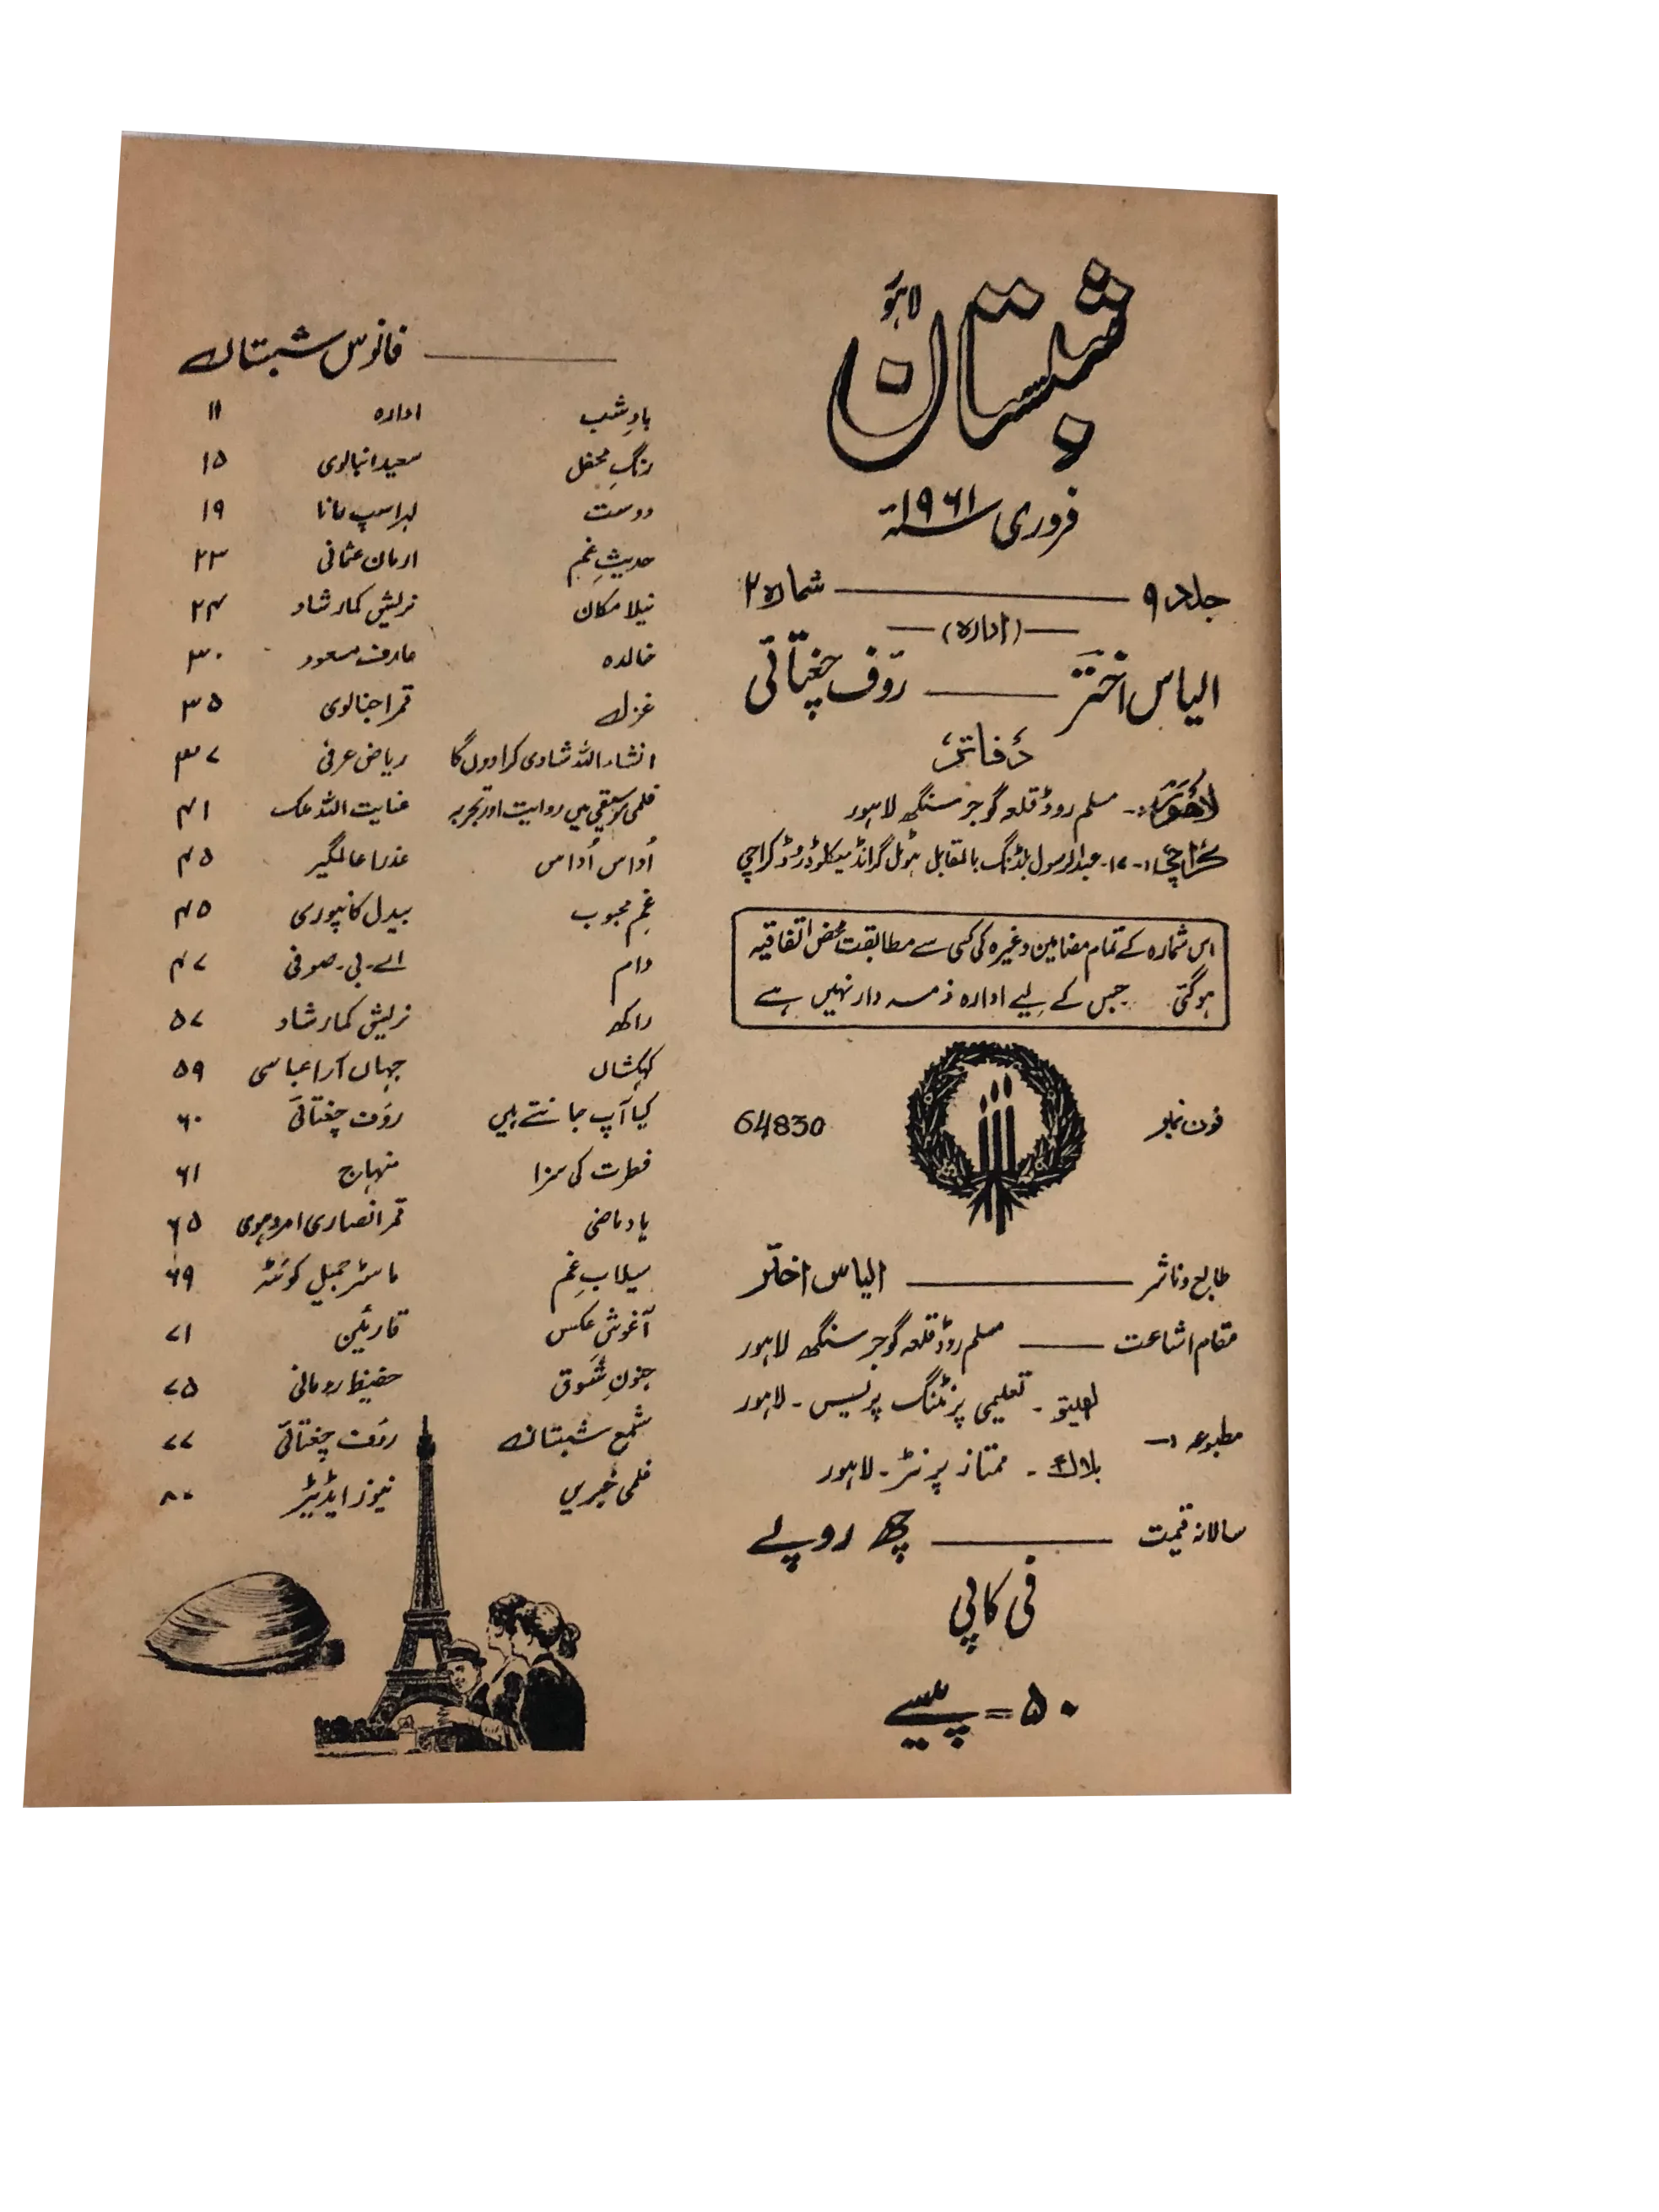 شبستان لاہور
فروری ۱۹۶۱ء
جلد ۹ شمارہ ۲
(ادارہ)
الیاس اختر رؤف چغتائی
دفاتر
لاہور:۔ مسلم روڈ قلعہ گوجر سنگھ لاہور
کراچی:۔ ۱۷۔ عبدالرسول بلڈنگ بالمقابل ہوٹل گرانڈ میکلوڈ روڈ کراچی
اس شمارہ کے تمام مضامین وغیرہ کی کسی سے مطابقت محض اتفاقیہ
ہوگی جس کے لیے ادارہ ذمہ دار نہیں ہے
فون نمبر 64830
طابع و ناشر الیاس اختر
مقام اشاعت مسلم روڈ قلعہ گوجر سنگھ لاہور
مطبوعہ:۔
لیتھو ۔ تعلیمی پرنٹنگ پریس ۔ لاہور
بلاک ۔ ممتاز پرنٹر ۔ لاہور
سالانہ قیمت چھ روپے
فی کاپی
۵۰ = پیسے
فانوس شبستان
بادِ شب ادارہ ۱۱
رنگِ محفل سعید انبالوی ۱۵
دوست لہراسپ مانا ۱۹
حدیثِ غم ارمان عثمانی ۲۳
نیلا مکان نریش کمار شاد ۲۴
خالدہ عارف مسعود ۳۰
غزل قمر اجنالوی ۳۵
انشاءاللہ شادی کرا دوں گا ریاض عرفی ۳۷
فلمی موسیقی میں روایت اور تجربہ عنایت اللہ عک ۴۱
اُداس اُداس عذرا عالمگیر ۴۵
غمِ محبوب بیدل کانپوری ۴۵
دام اے۔بی۔صوفی ۴۷
راکھ نریش کمار شاد ۵۷
کہکشاں جہاں آرا عباسی ۵۹
کیا آپ جانتے ہیں رؤف چغتائی ۶۰
فطرت کی سزا منہاج ۶۱
یاد ماضی قمر انصاری امروہوی ۶۵
سیلابِ غم ماسٹر جمیل کوئٹہ ۶۹
آغوشِ عکس قارئین ۷۱
جنونِ شوق حفیظ رومانی ۷۵
شمع شبستان رؤف چغتائی ۷۷
فلمی خبریں نیوز ایڈیٹر ۸۰